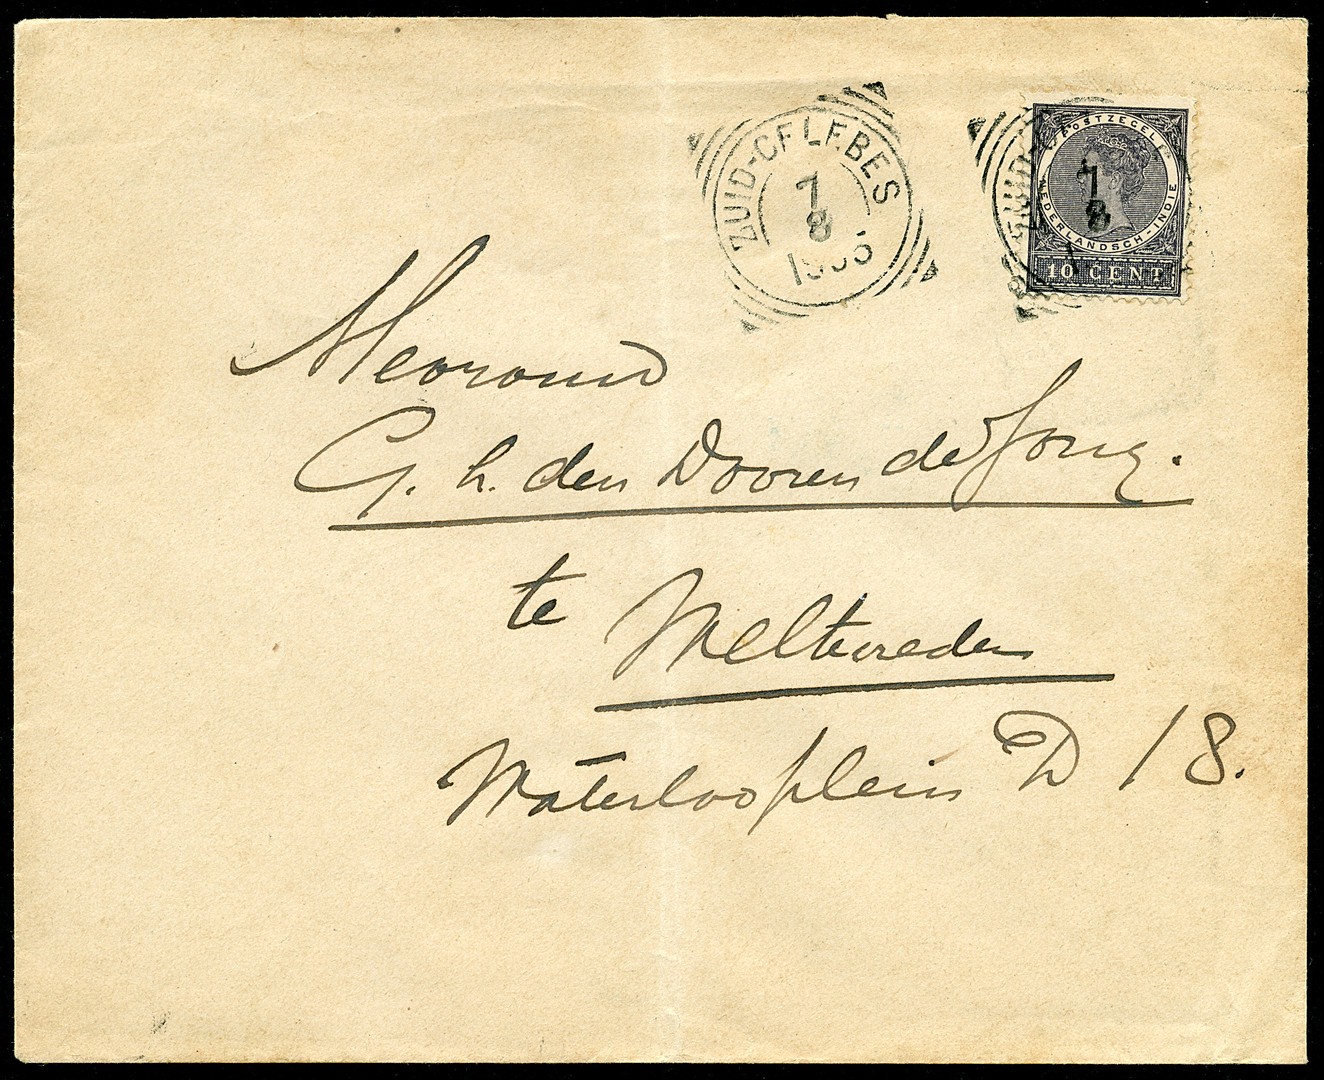 ZUID-CELEBES
7
8
1905
ZUID-C
7
8
1
POSTZEGEL
NEDERLANDSCH-INDIE
10 CENT
Mevrouw
G. h. den Dooren de Jong.
te
Weltevreden
Waterlooplein D 18.